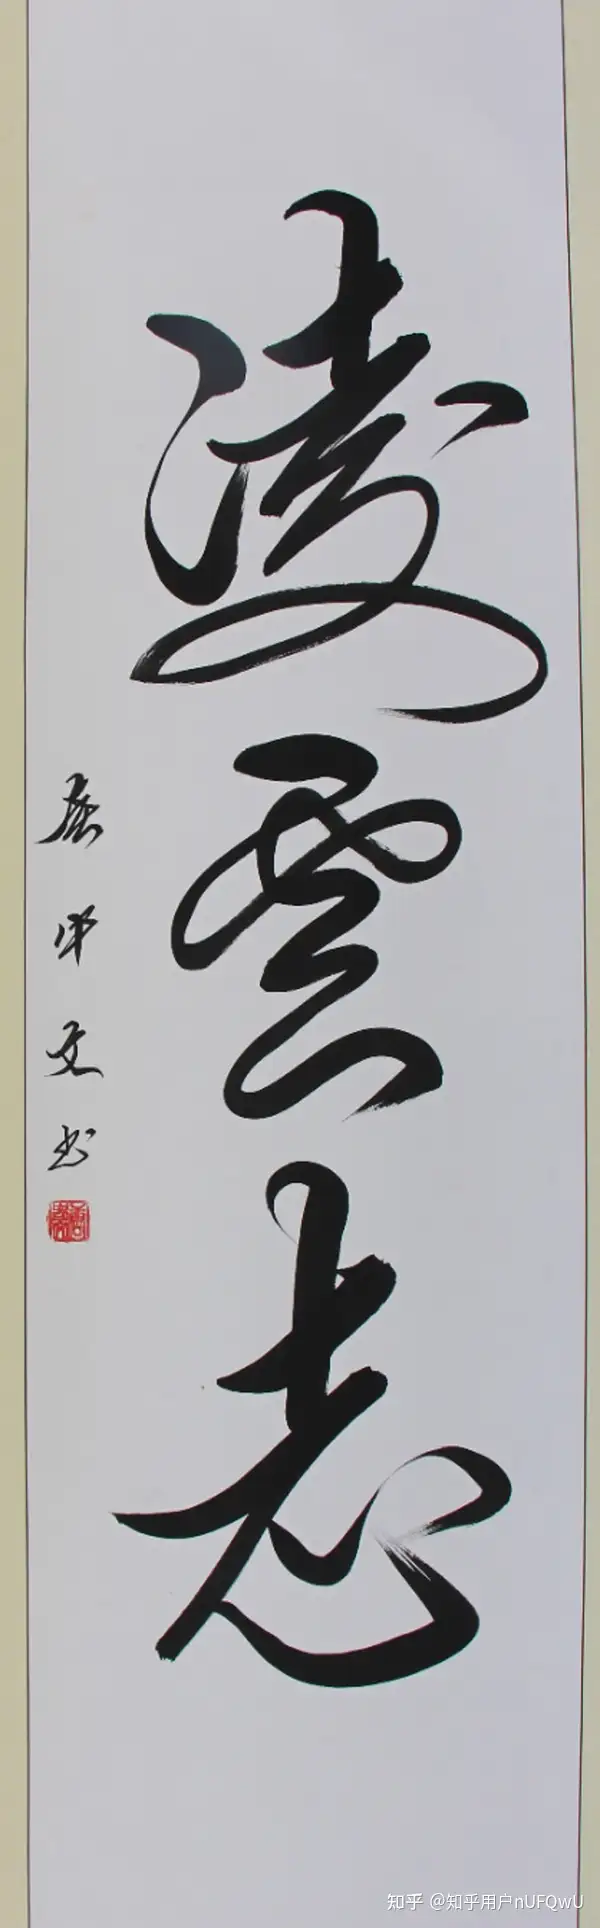 凌雲志
文书
知乎 @知乎用户nUFQwU